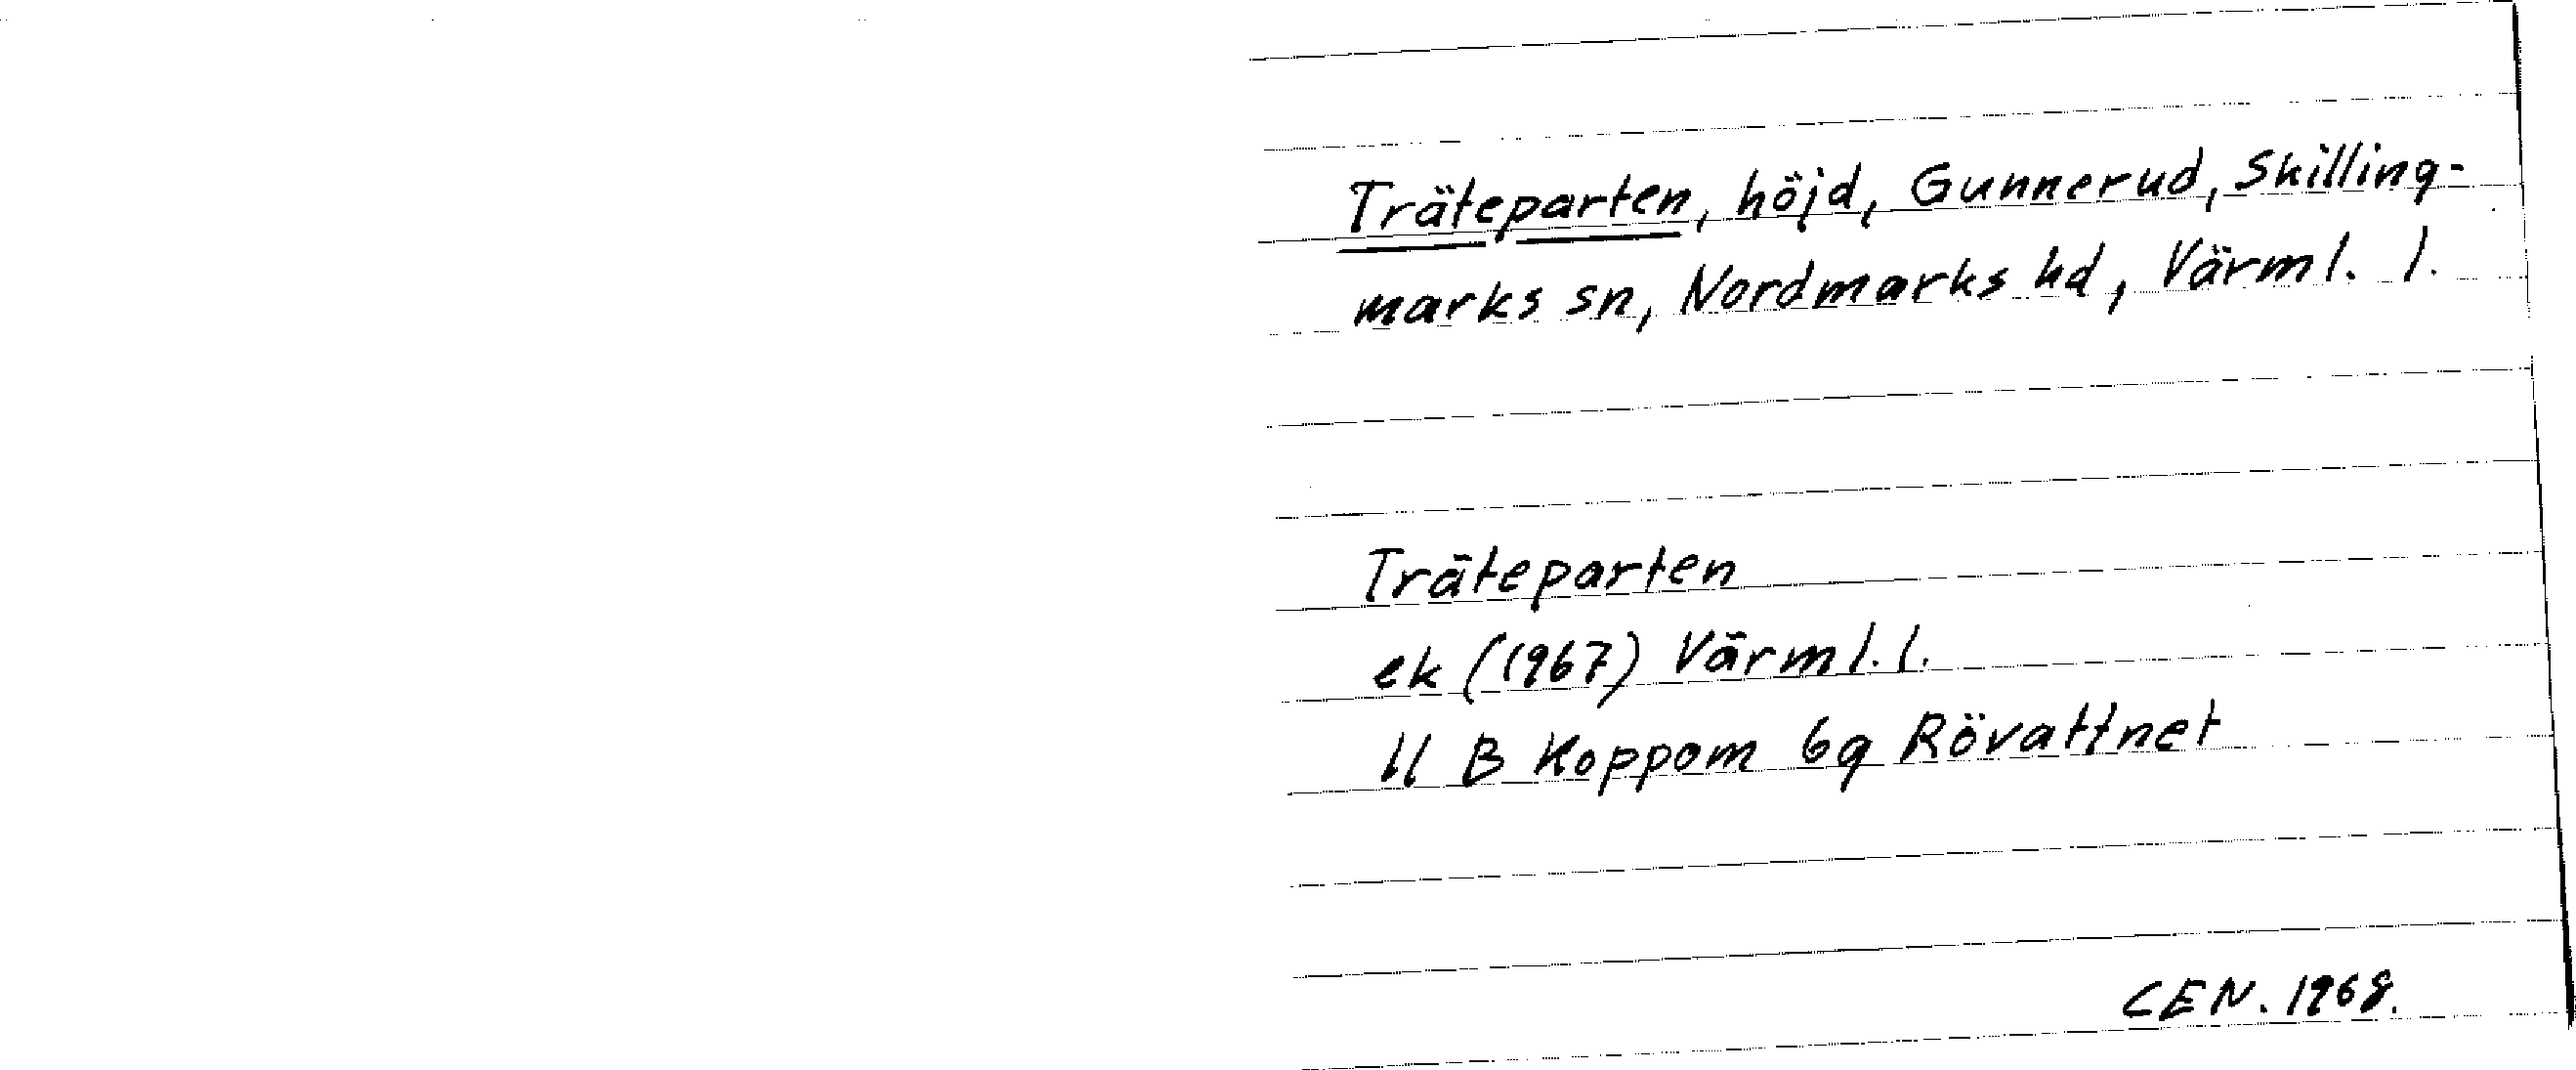 Träteparten, höjd, Gunnerud, Skilling-
marks sn, Nordmarks hd, Värml. l.
Träteparten
ek (1967) Värml. l.
11 B Koppom 6g Rövattnet
CEN. 1968.